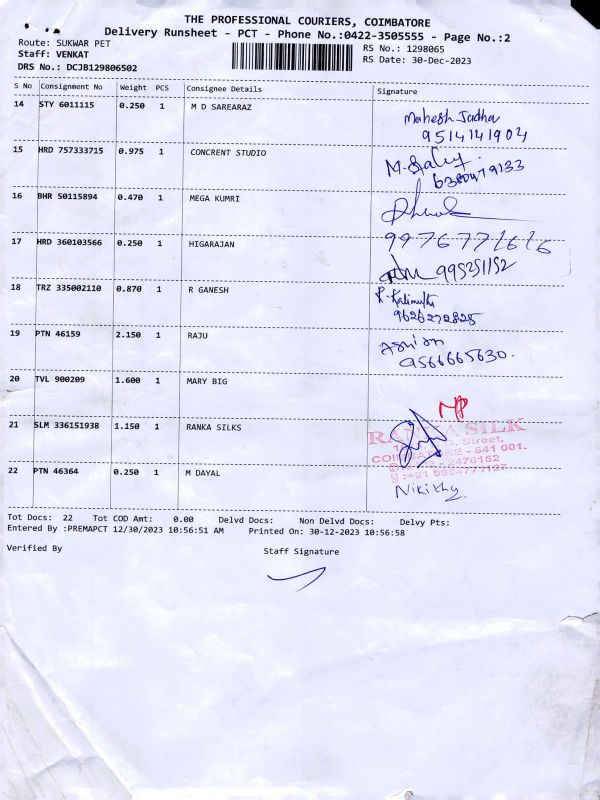 THE PROFESSIONAL COURIERS, COIMBATORE
Delivery Runsheet - PCT - Phone No.:0422-3505555 - Page No.:2
Route: SUKWAR PET
RS No.: 1298065
Staff: VENKAT
RS Date: 30-Dec-2023
DRS No.: DCJB129806502
S No Consignment No Weight PCS Consignee Details Signature
14 STY 6011115 0.250 1 M D SAREARAZ
Mahesh Jadhav
9514141904
15 HRD 757333715 0.975 1 CONCRENT STUDIO
16 BHR 50115894 0.470 1 MEGA KUMRI
17 HRD 360103566 0.250 1 HIGARAJAN
9976771616
995251152
18 TRZ 335002110 0.870 1 R GANESH
9626272825
19 PTN 46159 2.150 1 RAJU
9566665630.
20 TVL 900209 1.600 1 MARY BIG
21 SLM 336151938 1.150 1 RANKA SILKS
RANKA SILK
Street,
COIMBATORE - 641 001.
22 PTN 46364 0.250 1 M DAYAL
Tot Docs: 22 Tot COD Amt: 0.00 Delvd Docs: Non Delvd Docs: Delvy Pts:
Entered By :PREMAPCT 12/30/2023 10:56:51 AM Printed On: 30-12-2023 10:56:58
Verified By Staff Signature